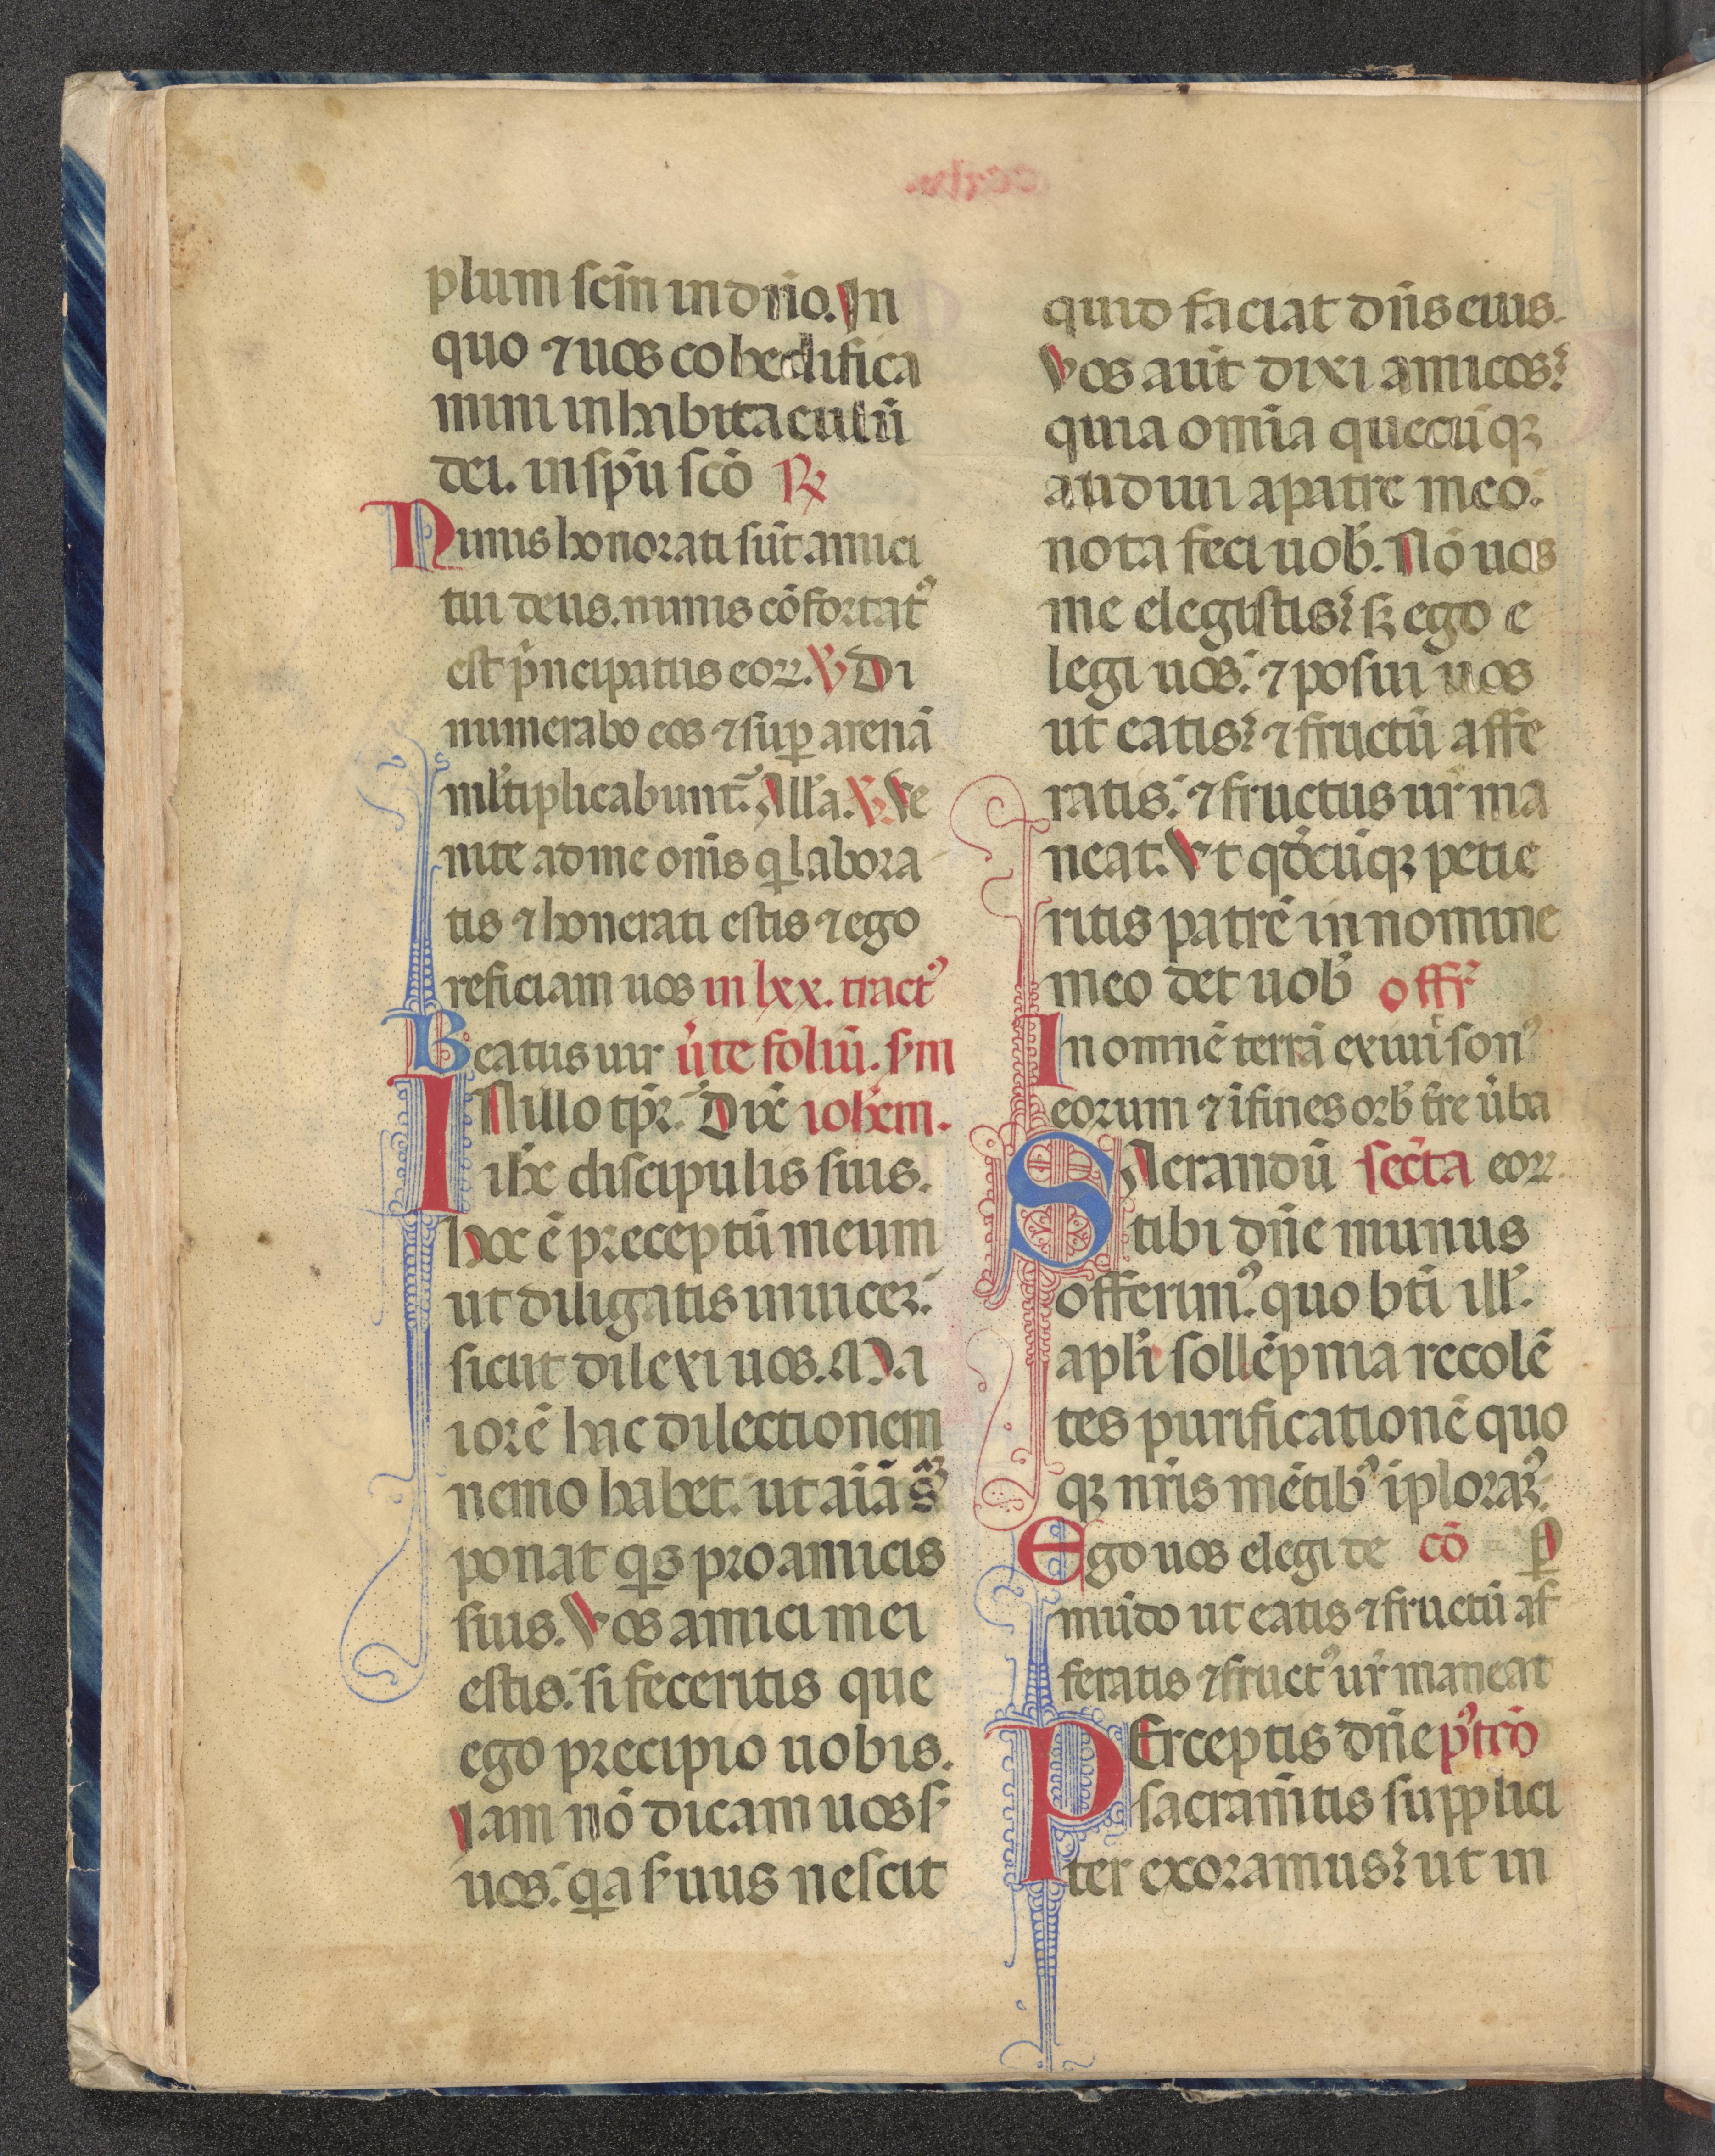 plum scm̄ in dn̄o. In
quo ⁊ uos cohedifica
mini in habitaculū
dei. in sp̄u scō ℞
Nimis honorati sūt amici
tui deus. nimis cōfortatꝰ
est pͥncipatus eoꝝ. ℣ Di
numerabo eos ⁊ suꝑ arenā
ml̓tiplicabunt᷑. All̓a. ℣. Ve
nite ad me om̄s q̇ labora
tis ⁊ honerati estis ⁊ ego
reficiam uos in lxx. tractꝰ
Beatus uir ūte foliū. s̓m
IN illo tp̄r. Dix̄ ioh̄em.
ih̄c discipulis suis.
hoc ē preceptū meum
ut diligatis inuiceꝫ.
sicut dilexi uos. Ma
iorē hac dilectionem
nemo habet. ut aīā s̄
ponat qͥs pro amicis
suis. Vos amici mei
estis. si feceritis que
ego precipio uobis.
Iam nō dicam uos s̓
uos. qͥa s̓uus nescit
quid faciat dn̄s eius.
Vos aūt dixi amicos.
quia om̄ia quecūqꝫ
audiui a patre meo.
nota feci uob̓. Nō uos
me elegistis. sꝫ ego e
legi uos. ⁊ posui uos
ut eatis. ⁊ fructū affe
ratis. ⁊ fructus ur̄ ma
neat. Vt qd̓cūqꝫ petie
ritis patrē in nomine
meo det uob̓ offr̓
In omnē terrā exiuit sonꝰ
eorum ⁊ ī fines orb̓ tr̄e ūba
SAcrandū secͬta eoꝝ
tibi dn̄e munus
offerimꝰ. quo bt̄i ill̓.
apl̓i sollēpnia recolē
tes purificationē quo
qꝫ nr̄is mētibꝰ īploraꝝꝰ.
Ego uos elegi de cō ꝑ
mūdo ut eatis ⁊ fructū af
feratis ⁊ fructꝰ ur̄ maneat
PErceptis dn̄e pꝰtcō
sacram̄tis supplici
ter exoramus. ut in